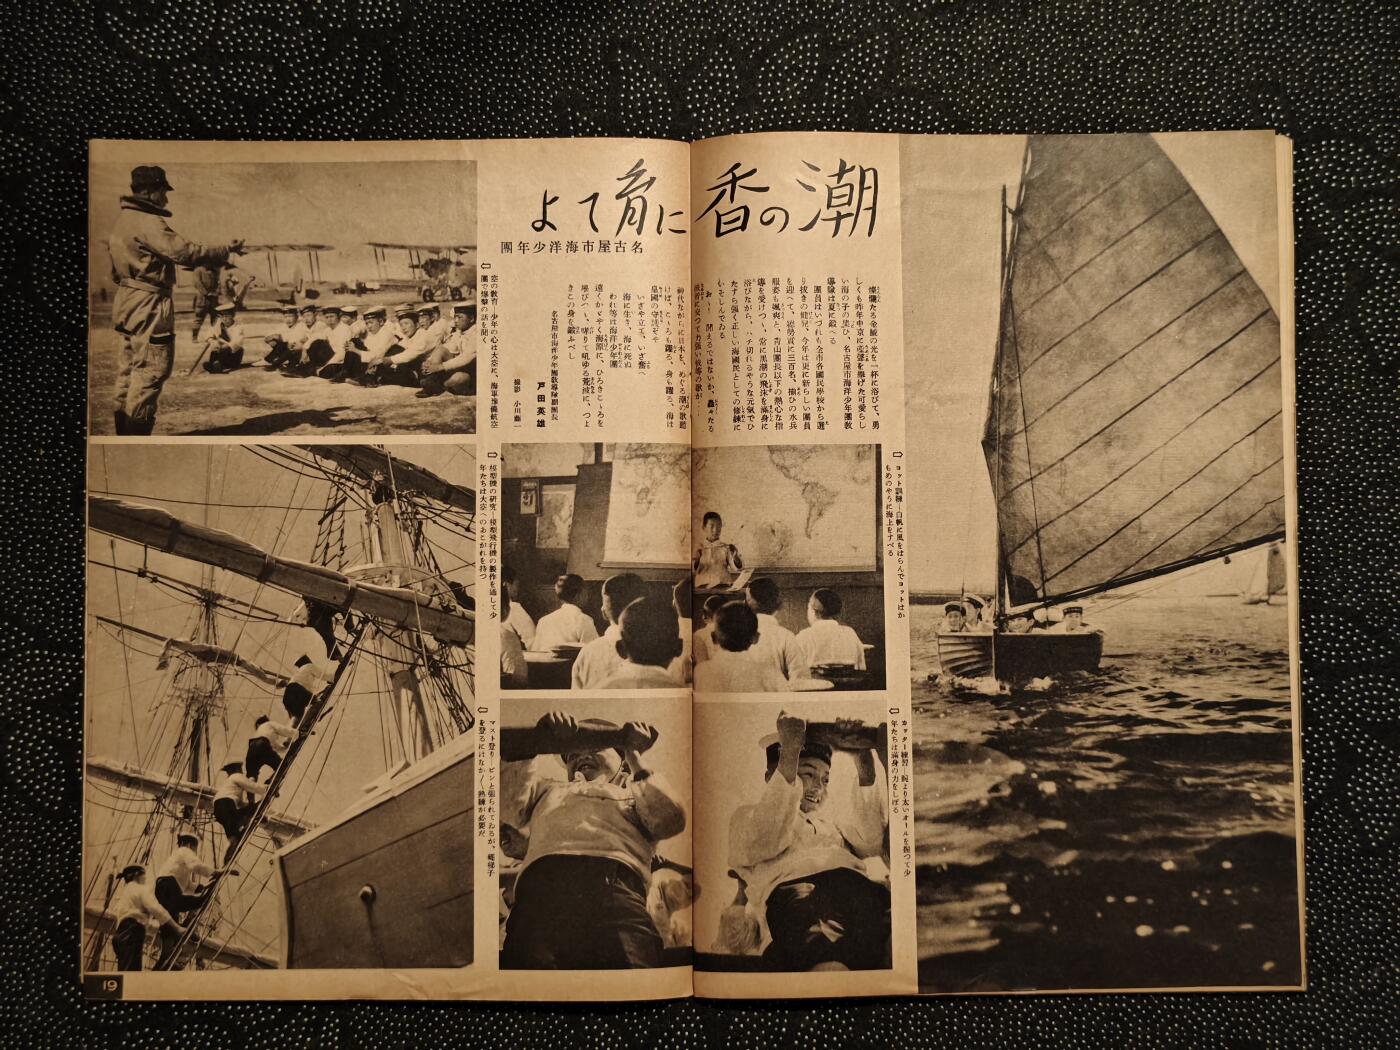 潮の香に育てよ
名古屋市海洋少年團
燦爛たる金鯱の光を一杯に浴びて、勇
しくも昨年中京に産聲を擧げた可愛らし
い海の子の集ひ、名古屋市海洋少年團敎
導隊は夏に鍛へる
團員はいづれも全市各國民學校から選
り抜きの健兒、今年は更に新らしい團員
を迎へて、總勢實に三百名、揃ひの水兵
服姿も颯爽と、靑山團長以下の熱心な指
導を受けつゝ、常に黑潮の飛沫を滿身に
浴びながら、ハチ切れるやうな元氣でひ
たすら强く正しい海國民としての修練に
いそしんでゐる
おゝ！聞えるではないか、轟々たる
神代ながらに日本を、めぐる潮の歌聽
けば、こゝろも躍る、身も躍る、海は
皇國の守護ぞ
いざや立て、いざ奮へ
海に生き、海に死ぬ
われ等は海洋少年團
遠くかゞやく海原に、ひろきこゝろを
呼びつゝ、哮りて吼ゆる荒波に、つよ
きこの身を鍛ふべし
名古屋市海洋少年團敎導隊副團長
戸田英雄
撮影 小川藤一
⇦ 空の敎育―少年の心は大空に、海軍豫備航空
團で爆擊の話を聞く
⇨ ヨット訓練―白帆に風をはらんでヨットはか
もめのやうに海上をすべる
⇨ 模型機の硏究―模型飛行機の製作を通して少
年たちは大空へのあこがれを持つ
⇦ カッター練習―腕より太いオールを握つて少
年たちは滿身の力をしぼる
⇦ マスト登り―ピンと張られてゐるが、繩梯子
を登るにはなか〱熟練が必要だ
19